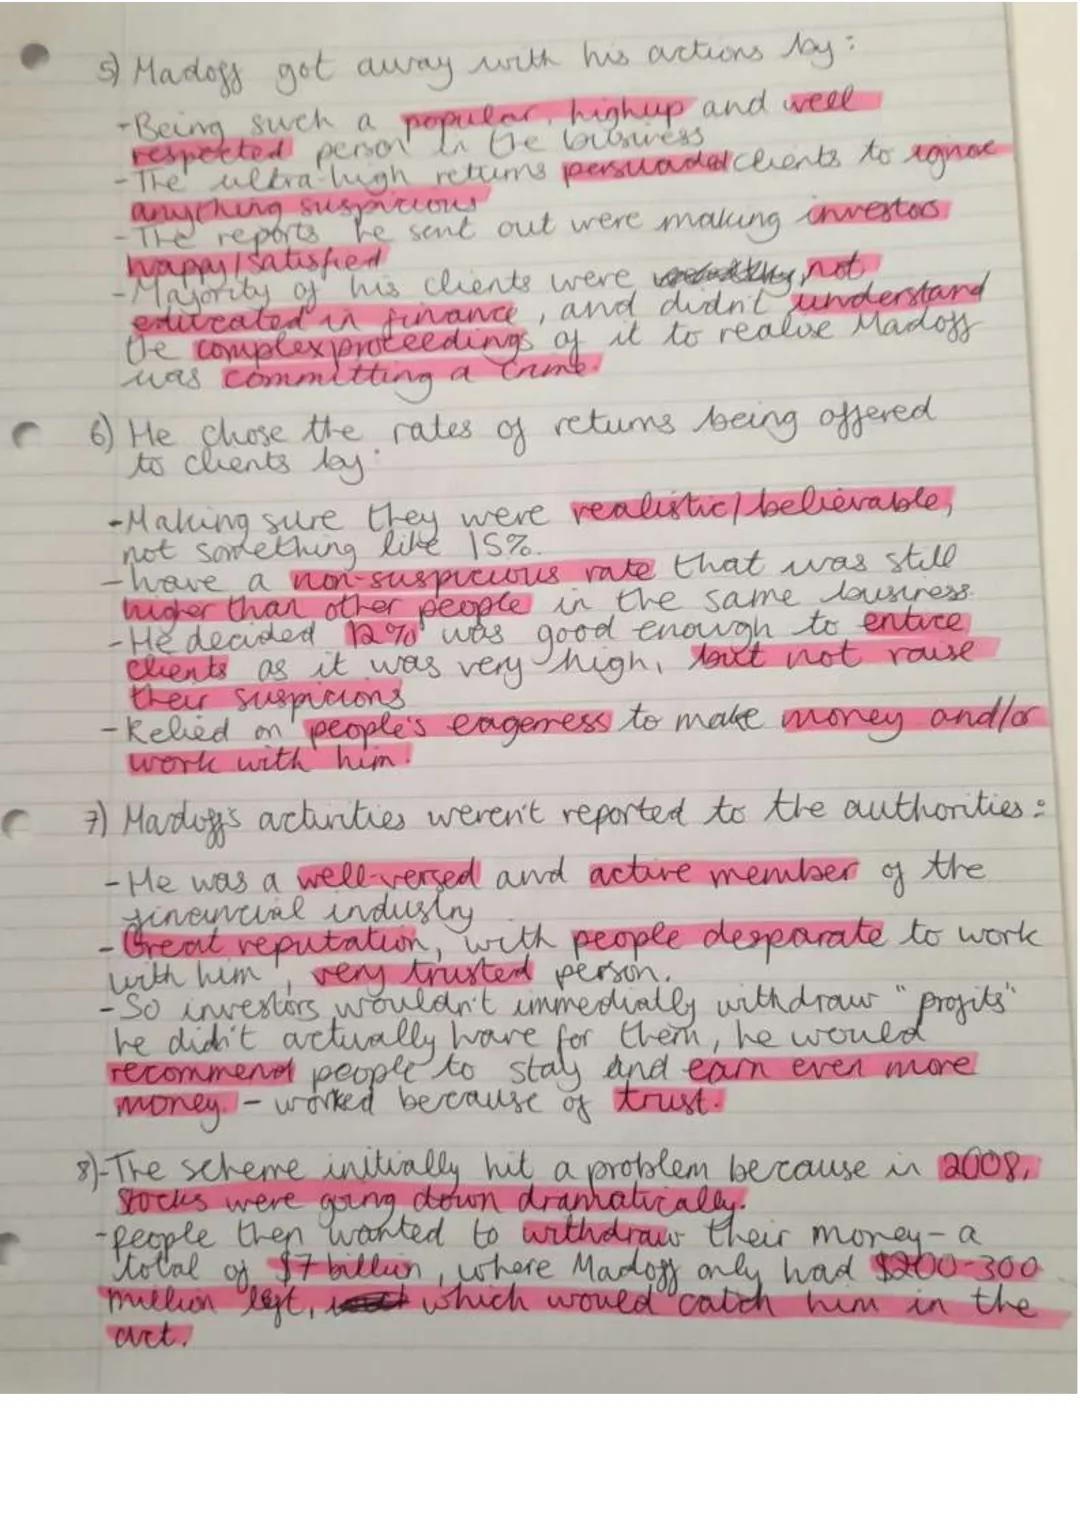 5) Madoff got away with his actions by:
-Being such a popular, highup and well
respected person in the business
-The ultra-high returns persuaded clients to ignore
anything suspicious
-The reports he sent out were making investors
happy/satisfied
-Majority of his clients were not
educated in finance, and didn't understand
the complex proceedings of it to realise Madoff
was committing a crime.
6) He chose the rates of returns being offered
to clients by:
-Making sure they were realistic/believable,
not something like 15%.
-have a non-suspicious rate that was still
higher than other people in the same business.
-He decided 12% was good enough to entice
clients as it was very high, but not raise
their suspicions
-Relied on people's eagerness to make money and/or
work with him.
7) Madoff's activities weren't reported to the authorities:
-He was a well-versed and active member of the
financial industry
-Great reputation, with people desparate to work
with him, very trusted person.
-So investors wouldn't immedially withdraw "profits"
he didn't actually have for them, he would
recommend people to stay and earn even more
money. - worked because of trust.
8)-The scheme initially hit a problem because in 2008,
stocks were going down dramatically.
-people then wanted to withdraw their money - a
total of $7 billion, where Madoff only had $200-300
million left, which would catch him in the
act.